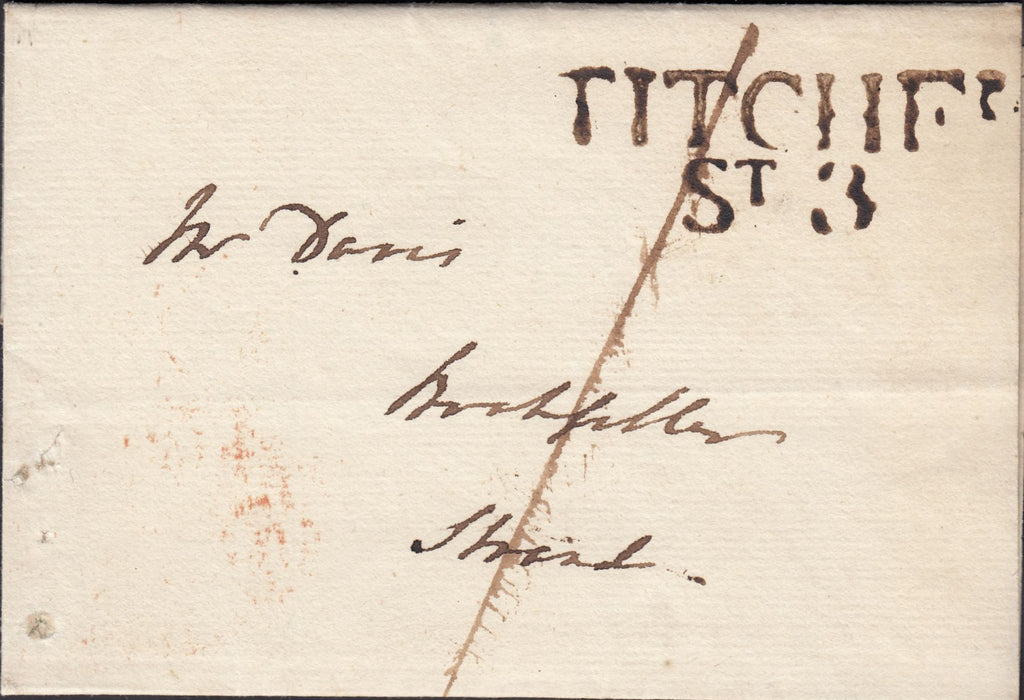 TITCHFI
ST 3
Mr Davis
Bookseller
Strand